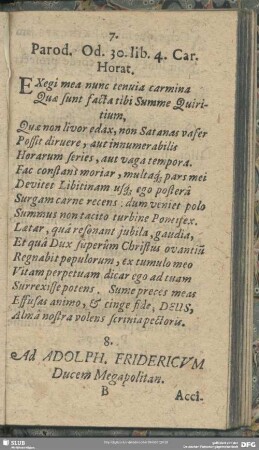 7.
Parod. Od. 30. lib. 4. Car.
Horat.
EXegi mea nunc tenuia carmina
Quæ sunt facta tibi Summe Quiri-
tium,
Quæ non livor edax, non Satanas vafer
Possit diruere, aut innumerabilis
Horarum series, aut vaga tempora.
Fac constans moriar, multaq; pars mei
Devitet Libitinam usq;, ego posterâ
Surgam carne recens: dum veniet polo
Summus non tacito turbine Pontifex.
Latar, quà resonant jubila, gaudia,
Et quà Dux superûm Christus ovantiũ
Regnabit populorum, ex tumulo meo
Vitam perpetuam dicar ego ad tuam
Surrexisse potens. Sume preces meas
Effusas animo, & cinge fide, DEUS,
Almâ nostra volens scrinia pectoris.
8.
Ad ADOLPH. FRIDERICVM
Ducem Megapolitan.
B
Acci-
SLUB
DFG